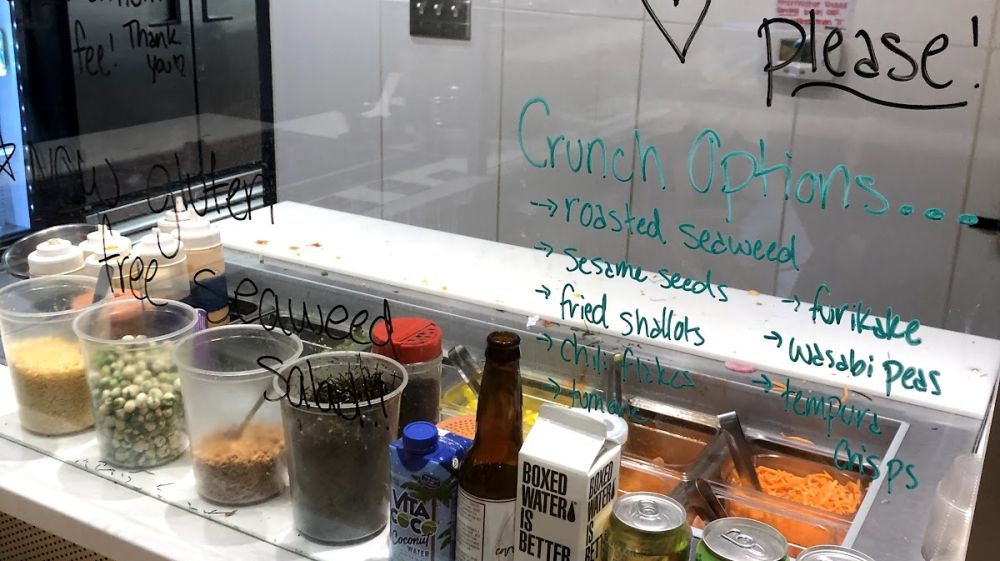 fee! Thank
you ♡
Please!
NOW gluten
free seaweed
salad!!
Crunch Options....
→ roasted seaweed
→ sesame seeds
→ fried shallots
→ chili flakes
→ furikake
→ wasabi peas
→ tempura
crisps
VITA
COCO
Coconut
WATER
BOXED
WATER
IS
BETTER